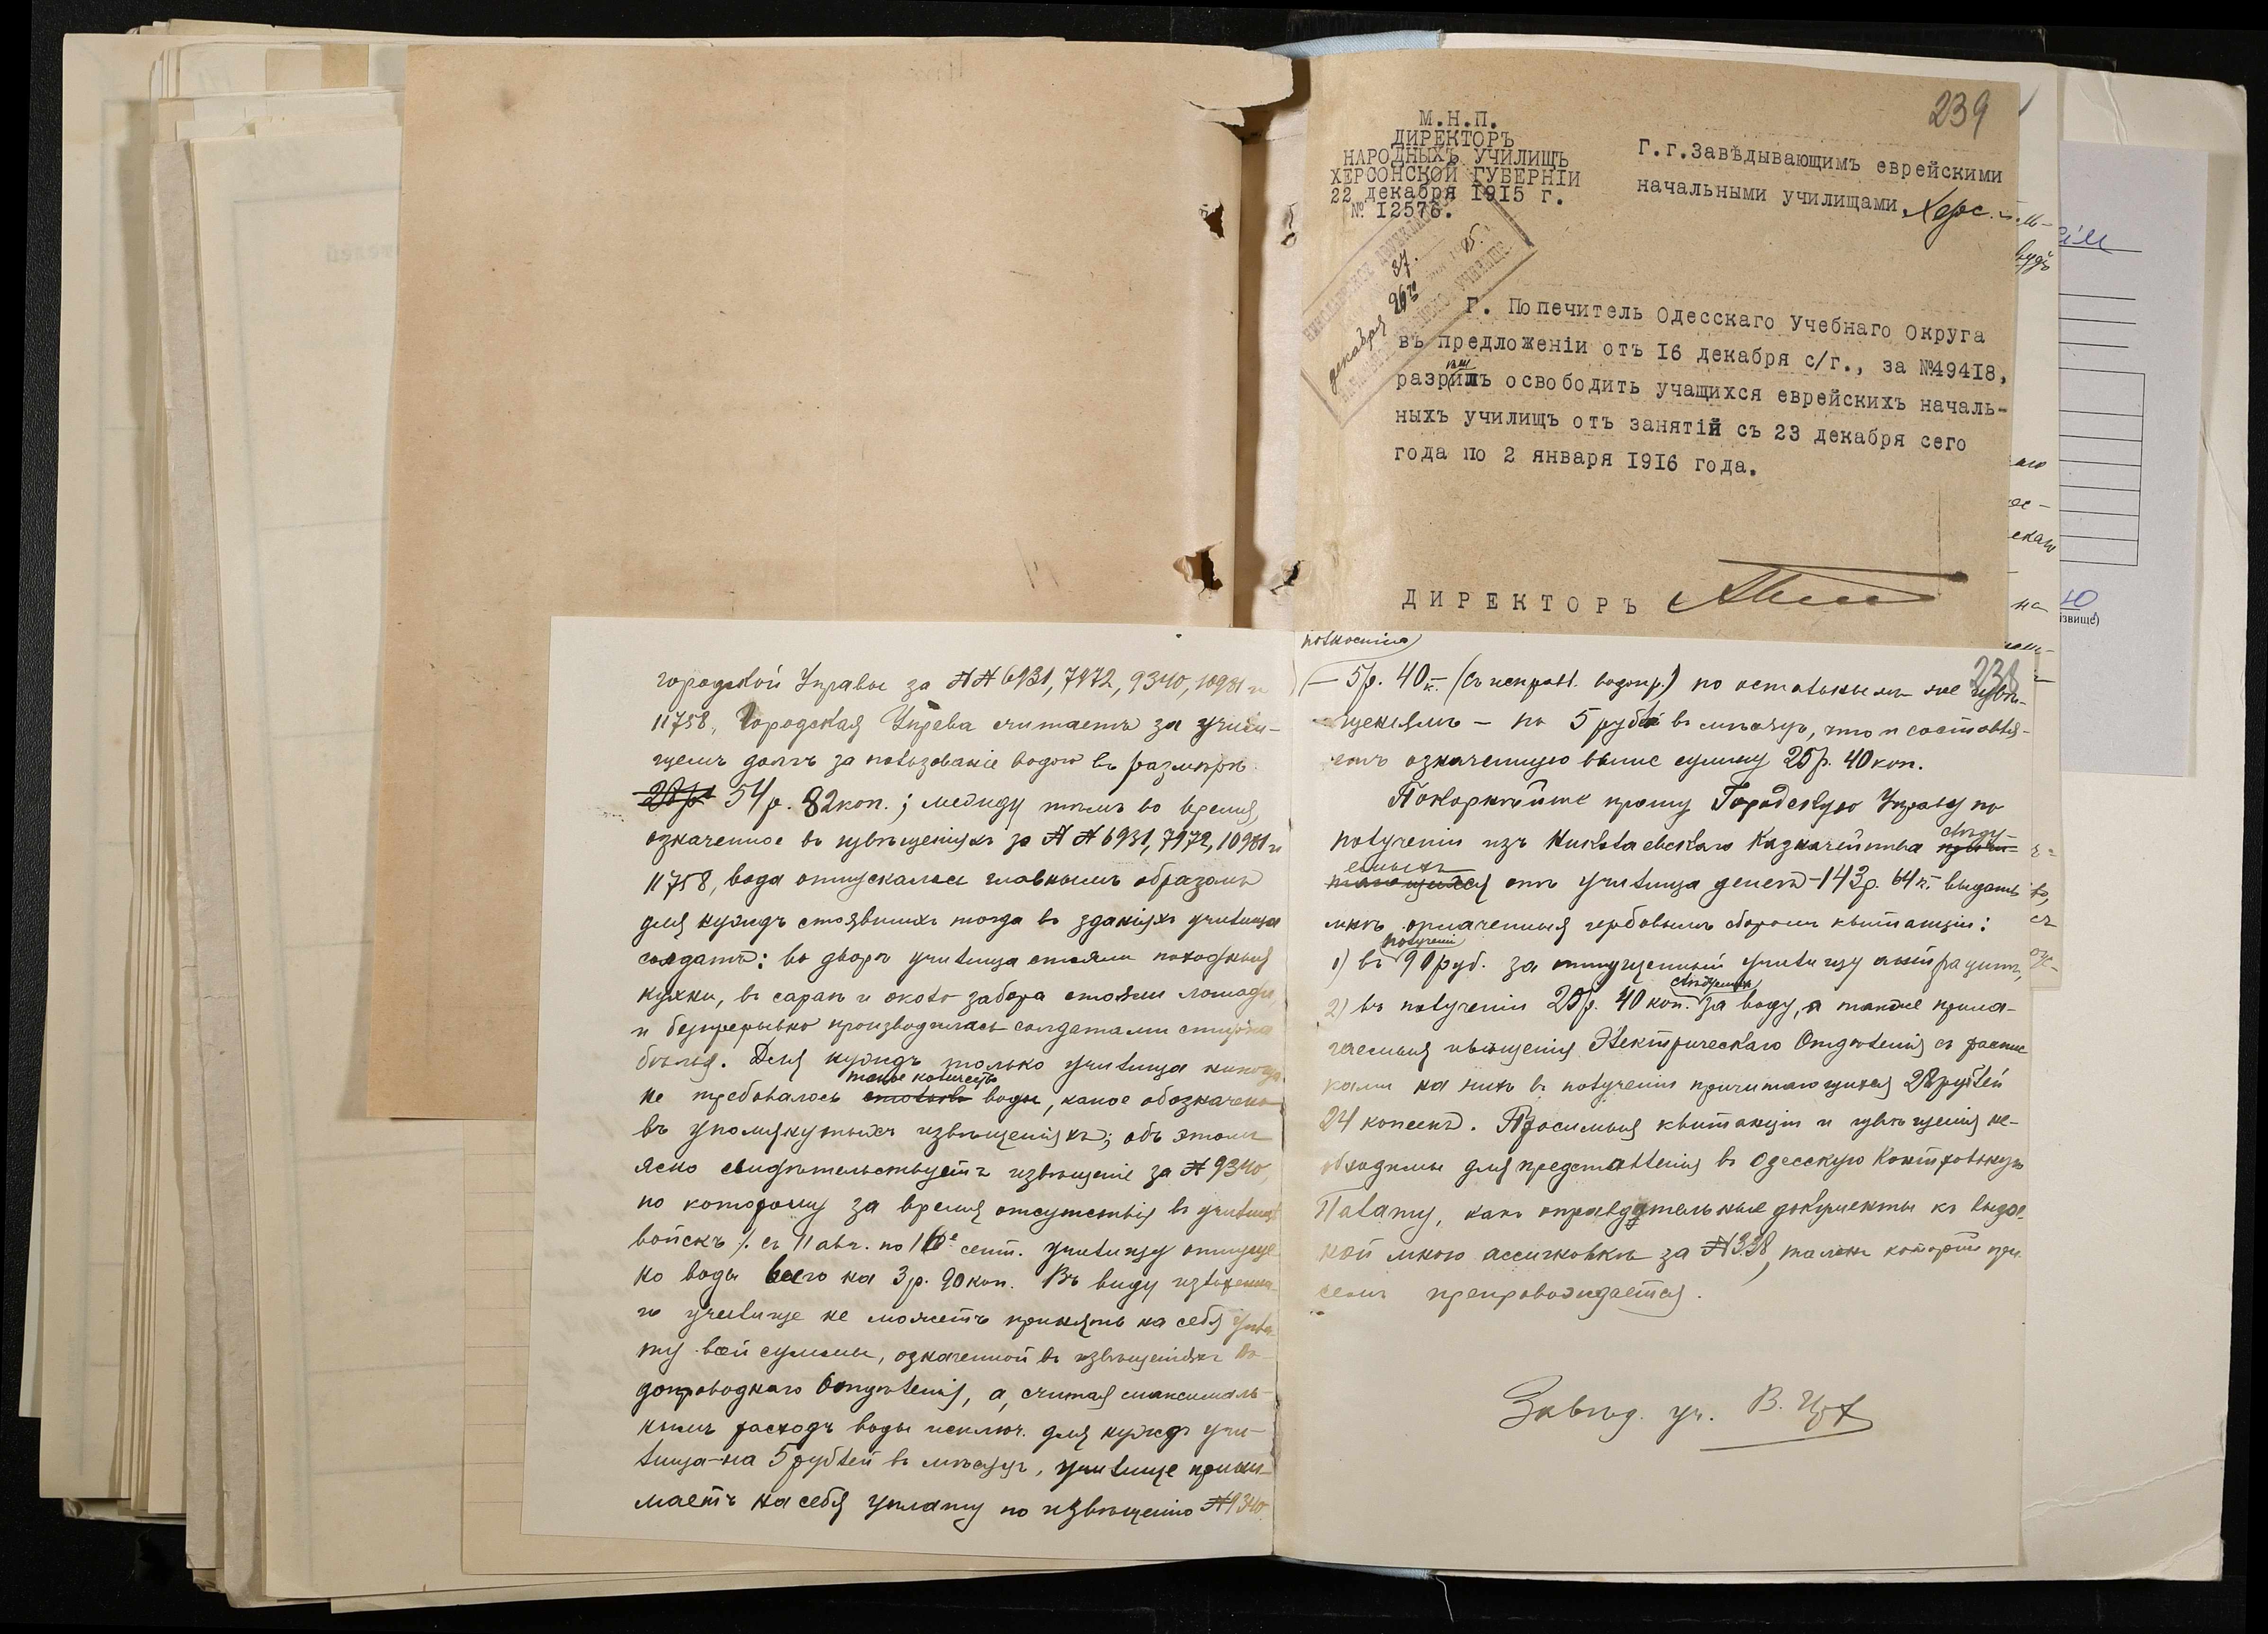 239
М.Н.П.
ДИРЕКТОРЪ
НАРОДНЫХЪ УЧИЛИЩЪ
ХЕРСОНСКОЙ ГУБЕРНІИ
22 декабря 1915 г.
№ 12576.
Г.г.Завѣдывающимъ еврейскими
начальными училищами Херс.
декабря 26го
37.
15
Г. Попечитель Одесскаго Учебнаго Округа
въ предложеніи отъ 16 декабря с/г., за №49418,
разрѣшилъ освободить учащихся еврейскихъ началь-
ныхъ училищъ отъ занятій съ 23 декабря сего
года по 2 января 1916 года.
ДИРЕКТОРЪ
городской Управы за №№ 6931, 7972, 9340, 10981 и
11758, Городская Управа считаетъ за учили-
щемъ долгъ за пользованіе водою въ размѣрѣ
28 р 54 р. 82 коп.; между тѣмъ во время,
означенное въ извѣщеніяхъ за №№ 6931, 7972, 10981 и
11758, вода отпускалась главнымъ образомъ
для нуждъ стоявшихъ тогда въ зданіяхъ училища
солдатъ: во дворѣ училища стояли походныя
кухни, въ сараѣ и около забора стояли лошади,
и безпрерывно производилась солдатами стирка
бѣлья. Для нуждъ только училища никогда
такое количество
не требовалось столько воды, какое обозначено
въ упомянутыхъ извѣщеніяхъ; объ этомъ
ясно свидѣтельствуетъ извѣщеніе за № 9340,
по которому за время отсутствія въ училищѣ
войскъ /. съ 11 авг. по 16е сент. училищу отпуще-
но воды всего на 3 р. 90 коп. Въ виду изложенна-
го училище не можетъ принять на себя упла-
ту всей суммы, означенной въ извѣщеніяхъ Во-
допроводнаго Отдѣленія, а, считая максималь-
нымъ расходъ воды исключ. для нуждъ учи-
лища на 5 рублей въ мѣсяцъ, училище прини-
маетъ на себя уплату по извѣщенію № 9340
238
полностью
– 5 р. 40 к. (съ исправл. водопр.) по остальнымъ же извѣ-
щеніямъ – по 5 рублей въ мѣсяцъ, что и составля-
етъ означенную выше сумму 25 р. 40 коп.
Покорнѣйше прошу Городскую Управу по
слѣду-
полученіи изъ Николаевскаго Казначейства причи-
емыхъ
тающихся отъ училища денегъ – 143 р. 64 к. выдать
мнѣ оплаченныя гербовымъ сборомъ квитанціи:
полученіи
1) въ 90 руб. за отпущенный училищу антрацитъ,
слѣдуемыхъ
2) въ полученіи 25 р. 40 коп. за воду, а также прила-
гаемыя извѣщенія Электрическаго Отдѣленія съ распис-
ками на нихъ въ полученіи причитающихся 28 рублей
24 копеекъ. Просимыя квитанціи и извѣщенія не-
обходимы для представленія въ Одесскую Контрольную
Палату, какъ оправдательные документы къ выдан-
ной мною ассигновкѣ за № 338, талонъ которой при
семъ препровождается.
Завѣд. уч.